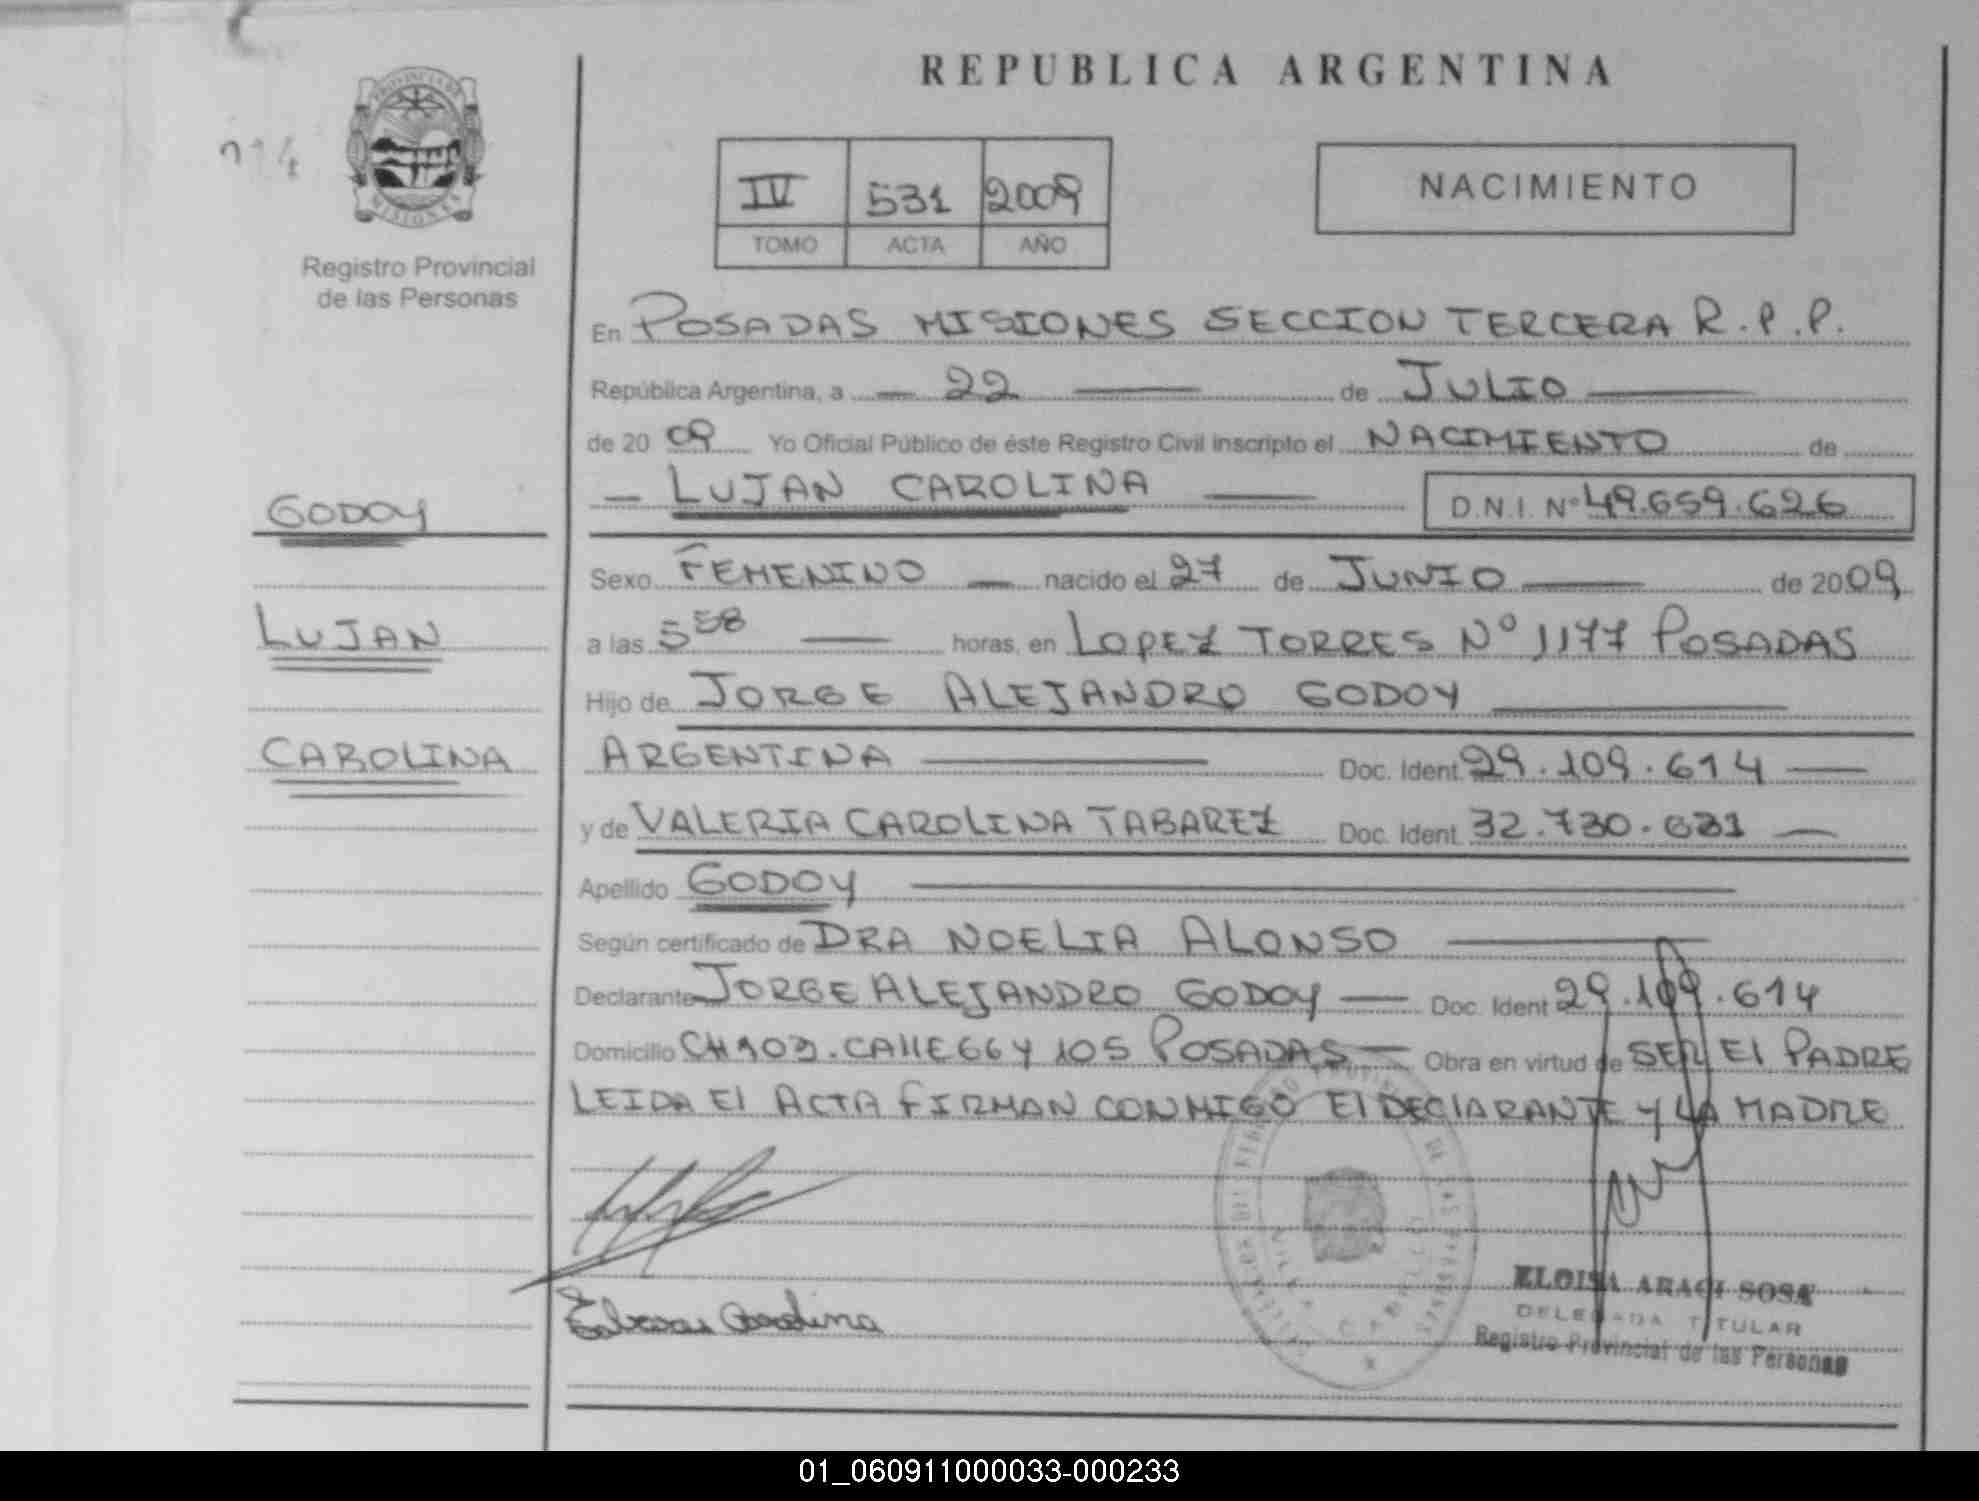 REPUBLICA ARGENTINA
PROVINCIA DE
MISIONES
Registro Provincial
de las Personas
IV 531 2009
TOMO ACTA AÑO
NACIMIENTO
En POSADAS MISIONES SECCION TERCERA R.P.P.
República Argentina, a — 22 — de JULIO —
de 20 09 Yo Oficial Público de éste Registro Civil inscripto el NACIMIENTO de
— LUJAN CAROLINA — D.N.I. Nº 49.659.626
GODOY
LUJAN
CAROLINA
Sexo FEMENINO — nacido el 27 de JUNIO — de 2009
a las 5 58 — horas, en LOPEZ TORRES Nº 1177 POSADAS
Hijo de JORGE ALEJANDRO GODOY —
ARGENTINA — Doc. Ident. 29.109.614 —
y de VALERIA CAROLINA TABAREZ Doc. Ident. 32.730.631 —
Apellido GODOY —
Según certificado de DRA NOELIA ALONSO —
Declarante JORGE ALEJANDRO GODOY — Doc. Ident 29.109.614
Domicilio CH 103. CALLE 66 Y 105 POSADAS — Obra en virtud de SER El PADRE
LEIDA El ACTA FIRMAN CONMIGO El DEClARANTE Y LA MADRE
Carolina
ELOISA ARACI SOSA
DELEGADA TITULAR
Registro Provincial de las Personas
01_060911000033-000233